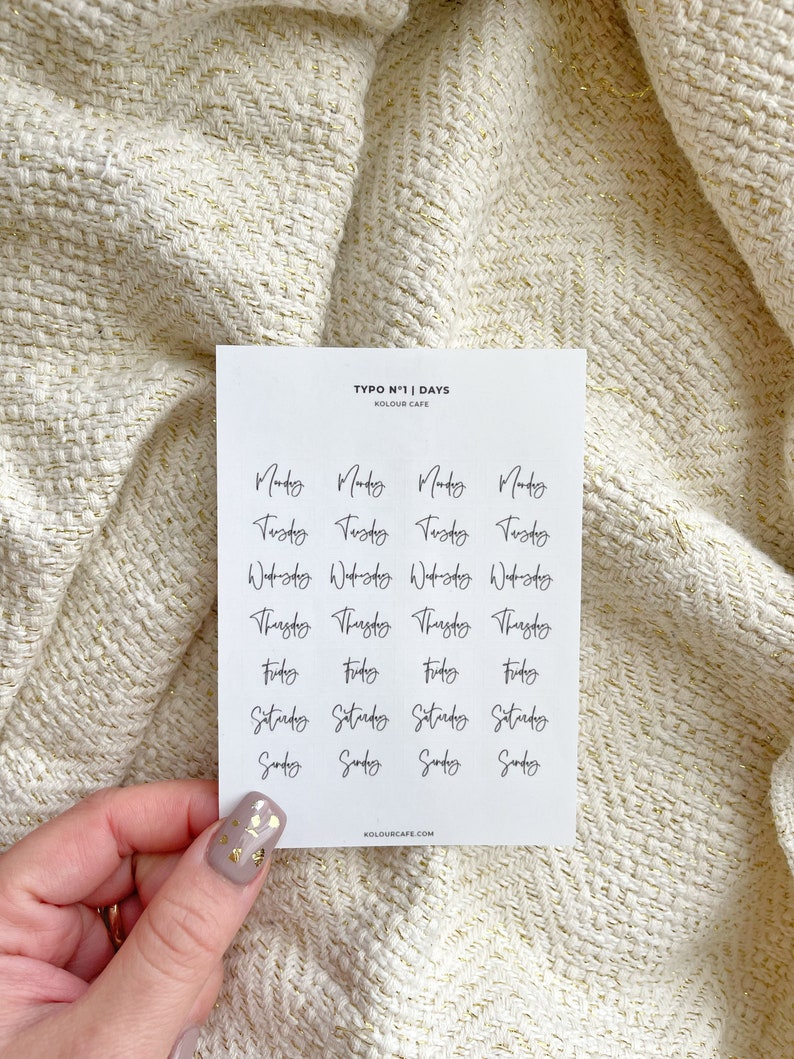 TYPO Nº1 | DAYS
KOLOUR CAFE
Monday Monday Monday Monday
Tuesday Tuesday Tuesday Tuesday
Wednesday Wednesday Wednesday Wednesday
Thursday Thursday Thursday Thursday
Friday Friday Friday Friday
Saturday Saturday Saturday Saturday
Sunday Sunday Sunday Sunday
KOLOURCAFE.COM